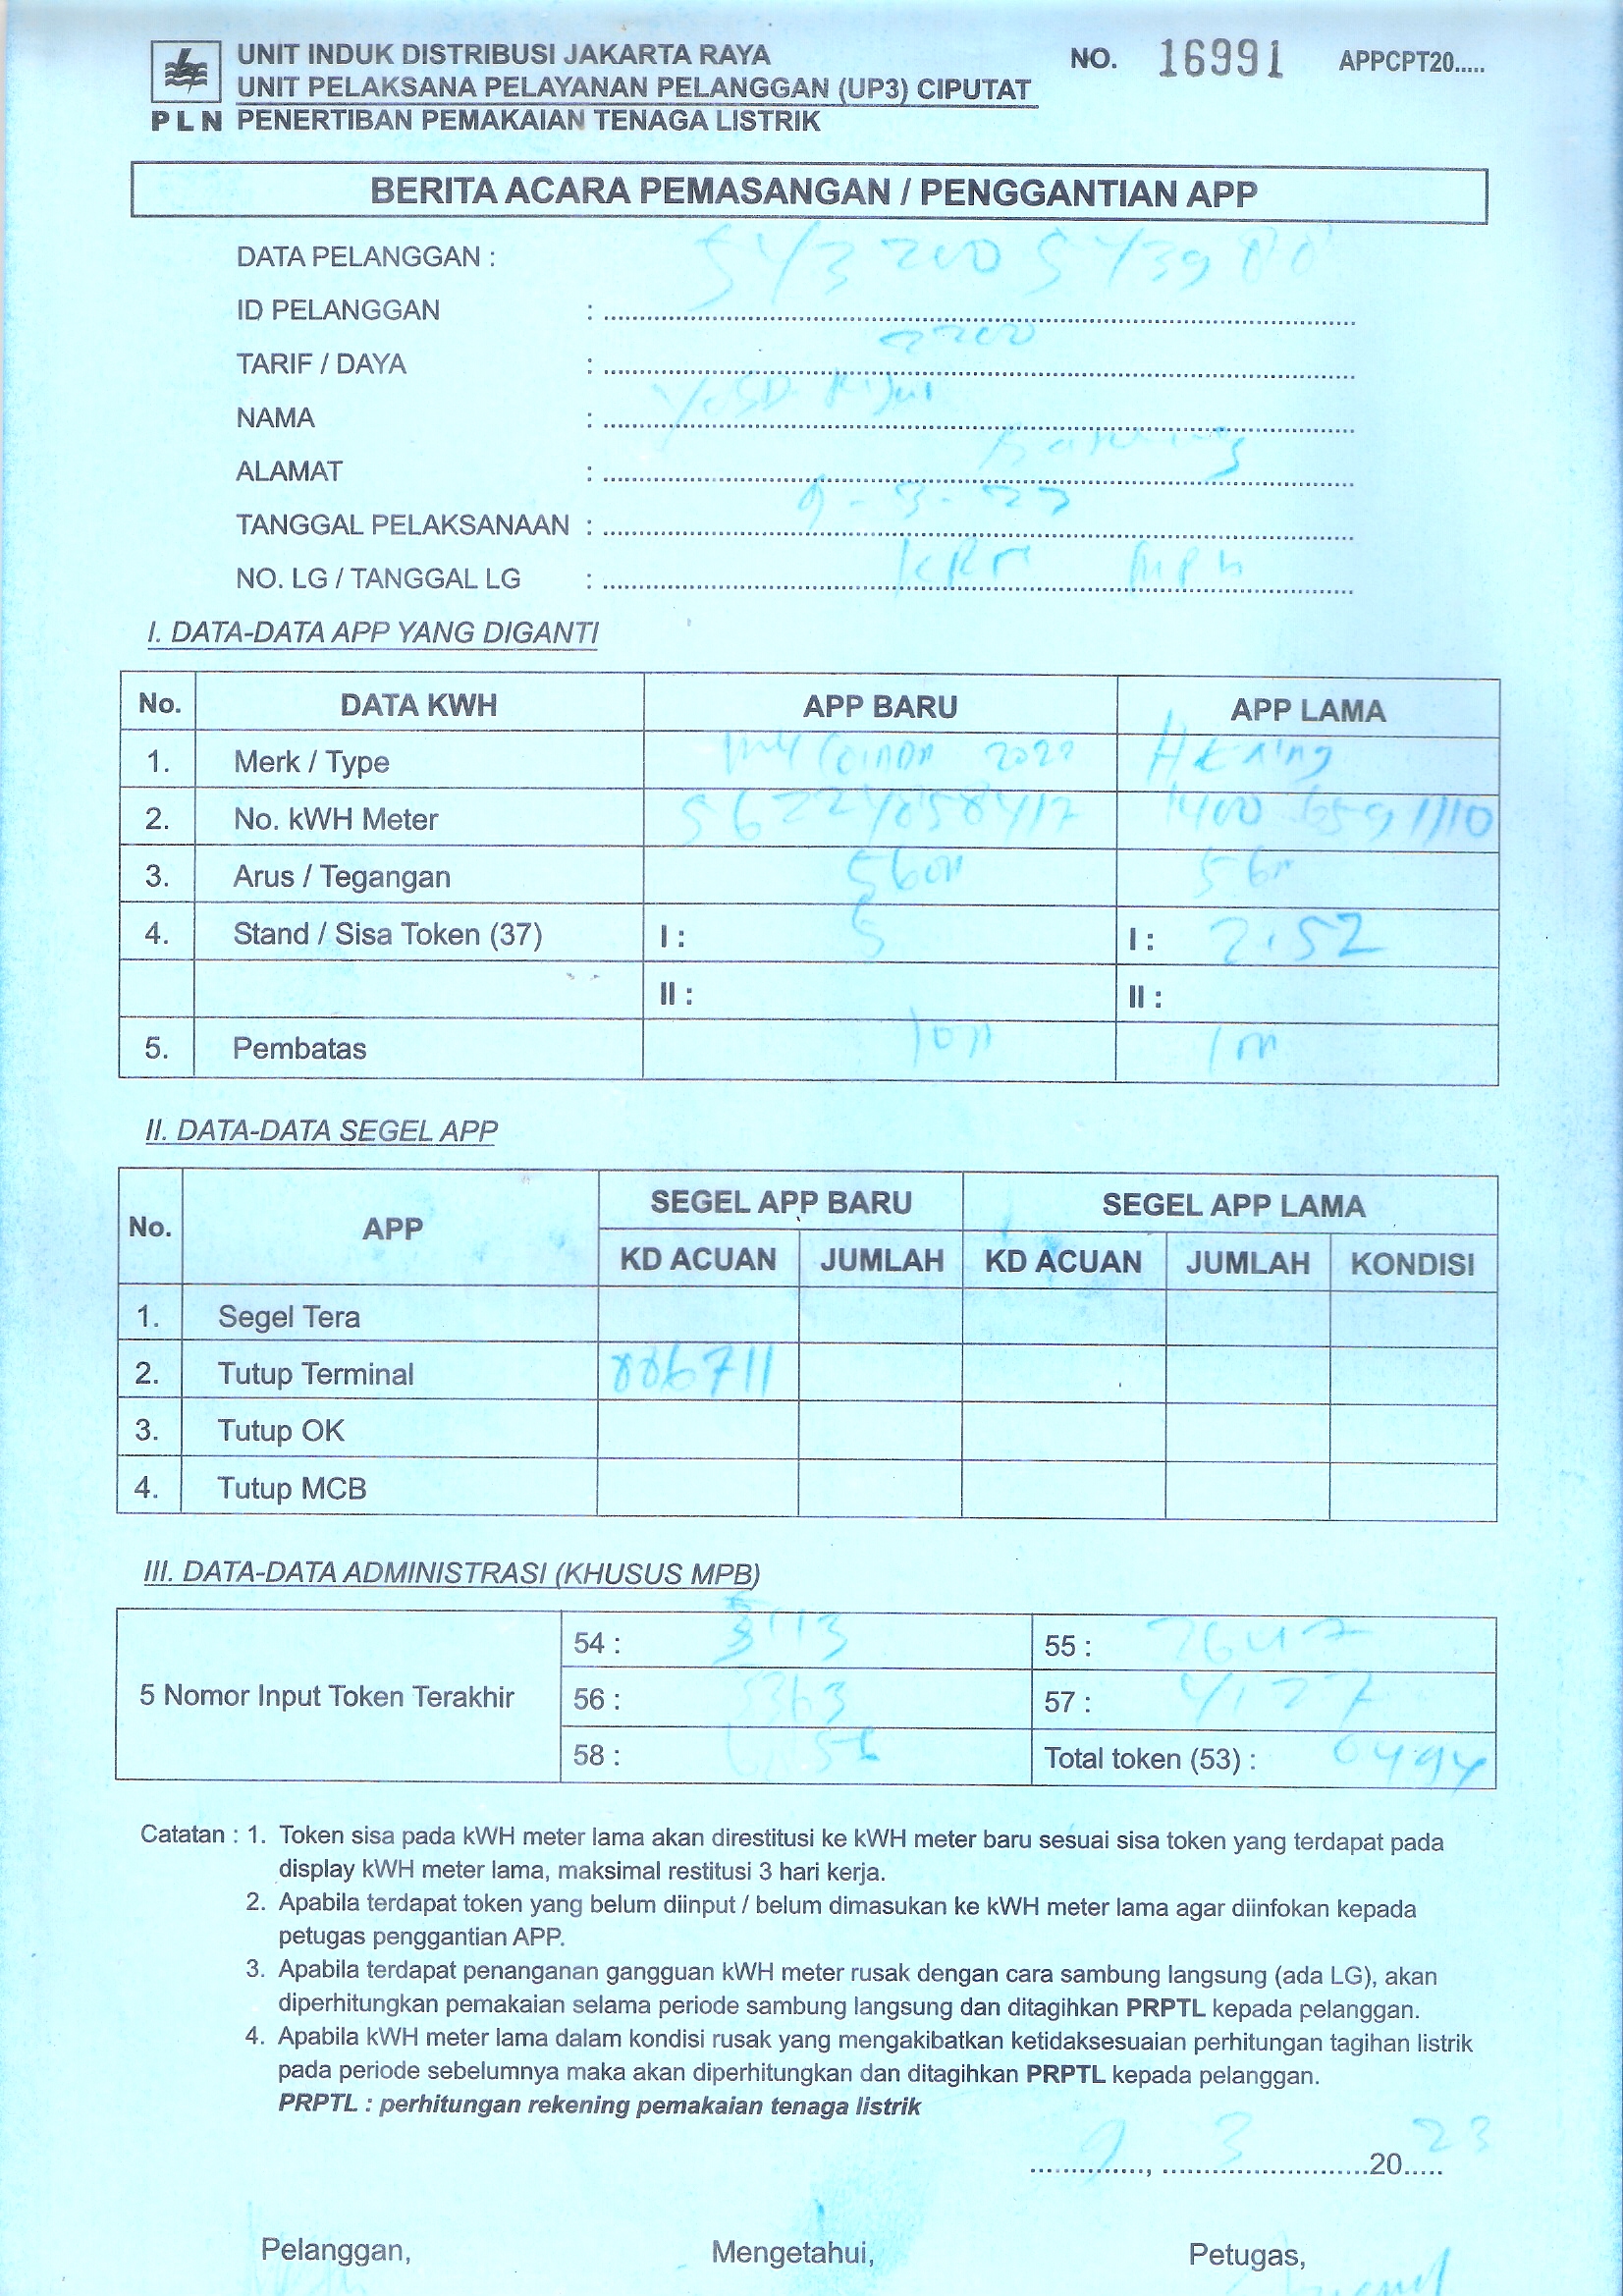 UNIT INDUK DISTRIBUSI JAKARTA RAYA
NO. 16991 APPCPT20.....
UNIT PELAKSANA PELAYANAN PELANGGAN (UP3) CIPUTAT
PLN PENERTIBAN PEMAKAIAN TENAGA LISTRIK
BERITA ACARA PEMASANGAN / PENGGANTIAN APP
DATA PELANGGAN :
ID PELANGGAN :
TARIF / DAYA : 2200
NAMA :
ALAMAT :
TANGGAL PELAKSANAAN : 9-3-23
NO. LG / TANGGAL LG :
I. DATA-DATA APP YANG DIGANTI
No. DATA KWH APP BARU APP LAMA
1. Merk / Type 2022
2. No. kWH Meter
3. Arus / Tegangan
4. Stand / Sisa Token (37) I : 5 I : 2.52
II : II :
5. Pembatas
II. DATA-DATA SEGEL APP
No. APP SEGEL APP BARU SEGEL APP LAMA
KD ACUAN JUMLAH KD ACUAN JUMLAH KONDISI
1. Segel Tera
2. Tutup Terminal 886711
3. Tutup OK
4. Tutup MCB
III. DATA-DATA ADMINISTRASI (KHUSUS MPB)
5 Nomor Input Token Terakhir
54 : 55 :
56 : 57 :
58 : Total token (53) :
Catatan : 1. Token sisa pada kWH meter lama akan direstitusi ke kWH meter baru sesuai sisa token yang terdapat pada
display kWH meter lama, maksimal restitusi 3 hari kerja.
2. Apabila terdapat token yang belum diinput / belum dimasukan ke kWH meter lama agar diinfokan kepada
petugas penggantian APP.
3. Apabila terdapat penanganan gangguan kWH meter rusak dengan cara sambung langsung (ada LG), akan
diperhitungkan pemakaian selama periode sambung langsung dan ditagihkan PRPTL kepada pelanggan.
4. Apabila kWH meter lama dalam kondisi rusak yang mengakibatkan ketidaksesuaian perhitungan tagihan listrik
pada periode sebelumnya maka akan diperhitungkan dan ditagihkan PRPTL kepada pelanggan.
PRPTL : perhitungan rekening pemakaian tenaga listrik
9, 3 20 23
Pelanggan, Mengetahui, Petugas,